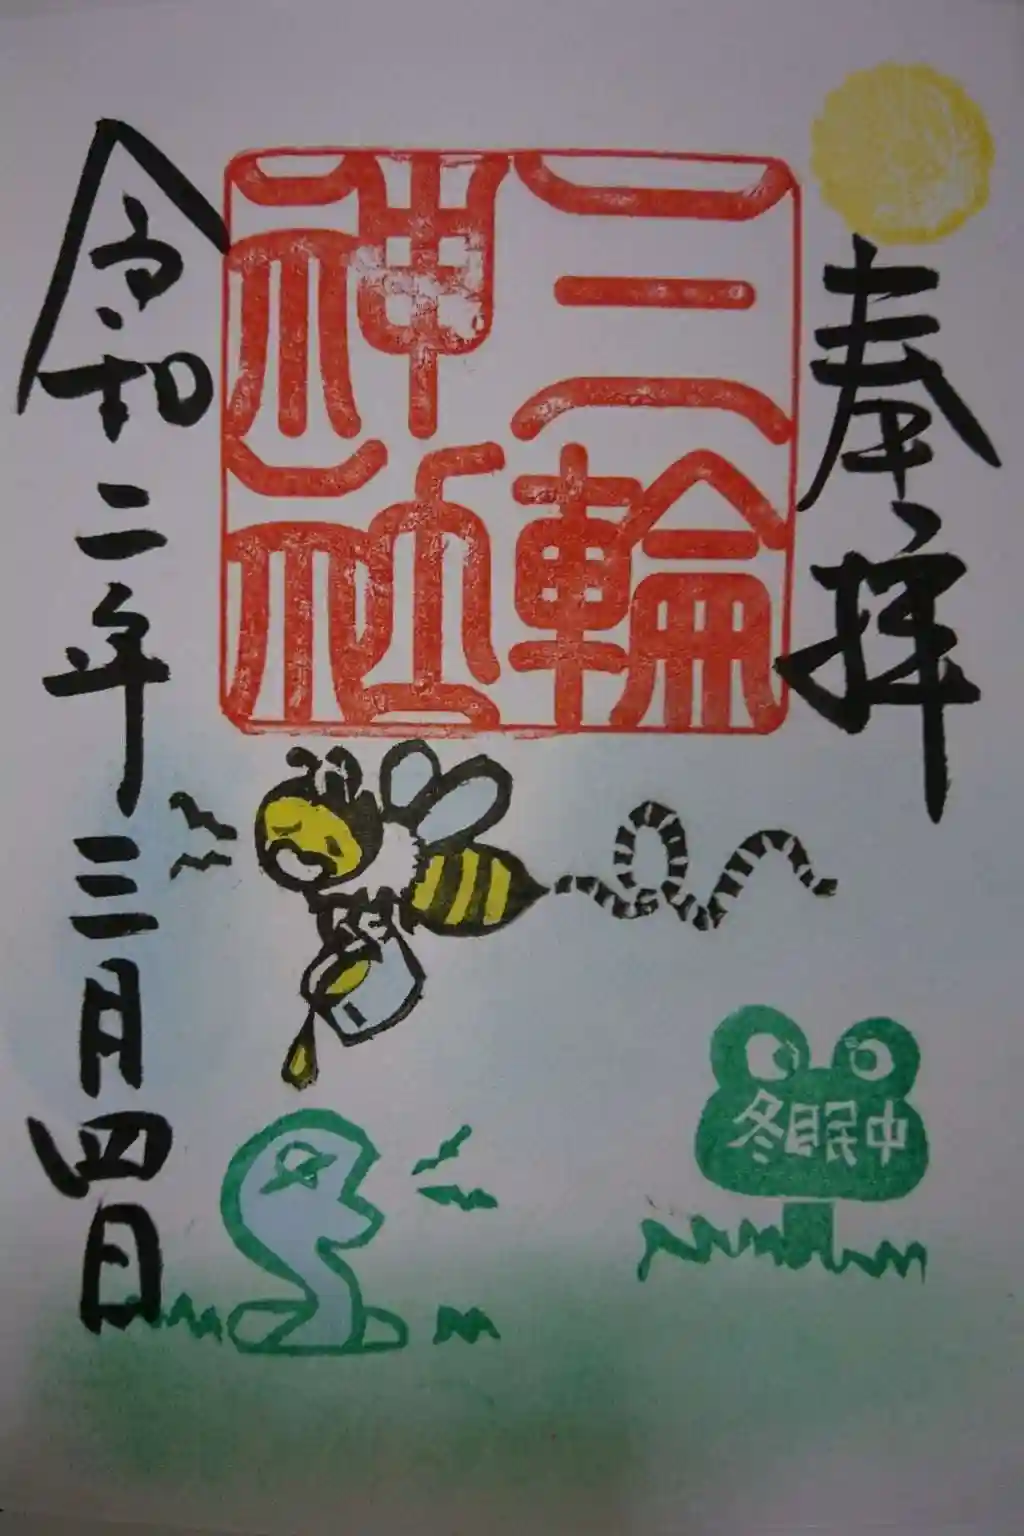 奉拝
三輪
神社
令和二年三月四日
冬眠中